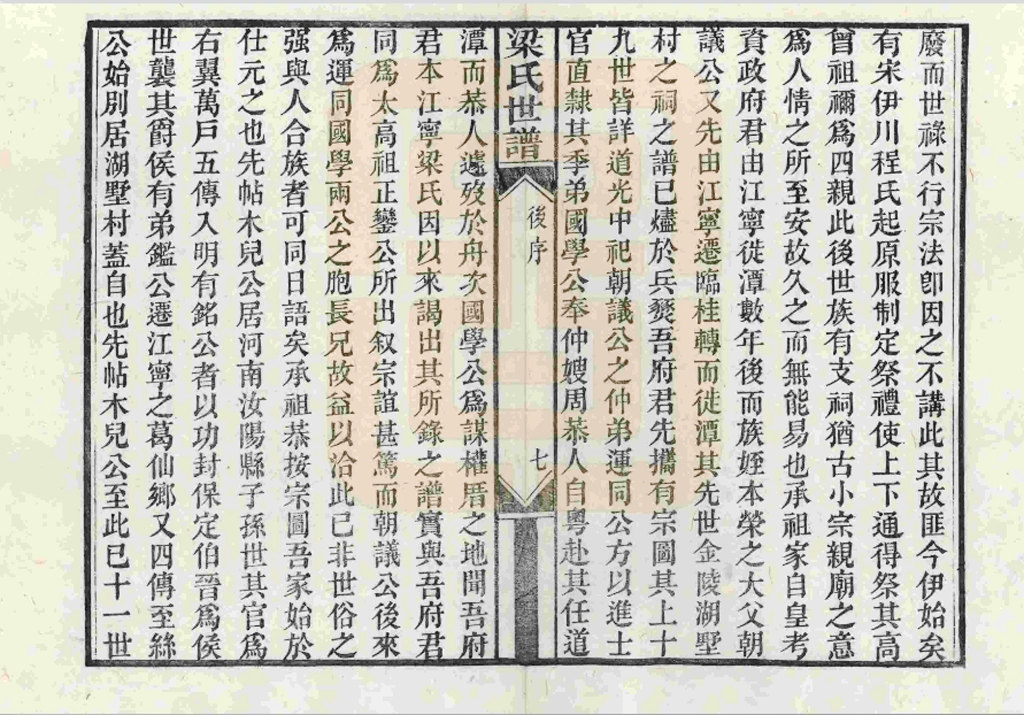 廢而世祿不行宗法卽因之不講此其故匪今伊始矣
有宋伊川程氏起原服制定祭禮使上下通得祭其高
曾祖禰爲四親此後世族有支祠猶古小宗親廟之意
爲人情之所至安故久之而無能易也承祖家自皇考
資政府君由江寧徙潭數年後而族姪本榮之大父朝
議公又先由江寧遷臨桂轉而徙潭其先世金陵湖墅
村之祠之譜已燼於兵燹吾府君先攜有宗圖其上十
九世皆詳道光中祀朝議公之仲弟運同公方以進士
官直隸其季弟國學公奉仲嫂周恭人自粵赴其任道
梁氏世譜
後序
七
潭而恭人遽歿於舟次國學公爲謀權厝之地聞吾府
君本江寧梁氏因以來謁出其所錄之譜實與吾府君
同爲太高祖正鑾公所出叙宗誼甚篤而朝議公後來
爲運同國學兩公之胞長兄故益以洽此已非世俗之
强與人合族者可同日語矣承祖恭按宗圖吾家始於
仕元之也先帖木兒公居河南汝陽縣子孫世其官爲
右翼萬戸五傳入明有銘公者以功封保定伯晉爲侯
世襲其爵侯有弟鑑公遷江寧之葛仙鄉又四傳至絲
公始別居湖墅村蓋自也先帖木兒公至此已十一世